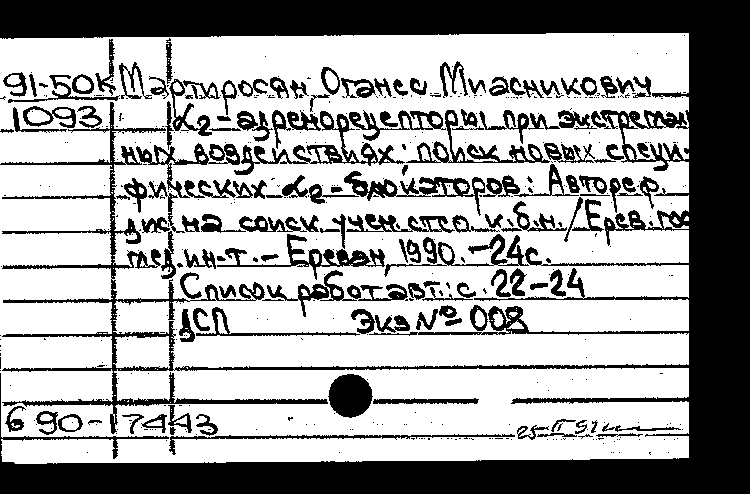 91-50К Мартиросян, Оганес Миасникович
1093 α2-адренорецепторы при экстремаль
ных воздействиях: поиск новых специ-
фических α2-блокаторов: Автореф.
дис. на соиск. учен. степ. к.б.н. / Ерев. гос
мед. ин-т. - Ереван, 1990. - 24с.
Список работ авт.: с. 22-24
ДСП Экз № 008
6 90-17443